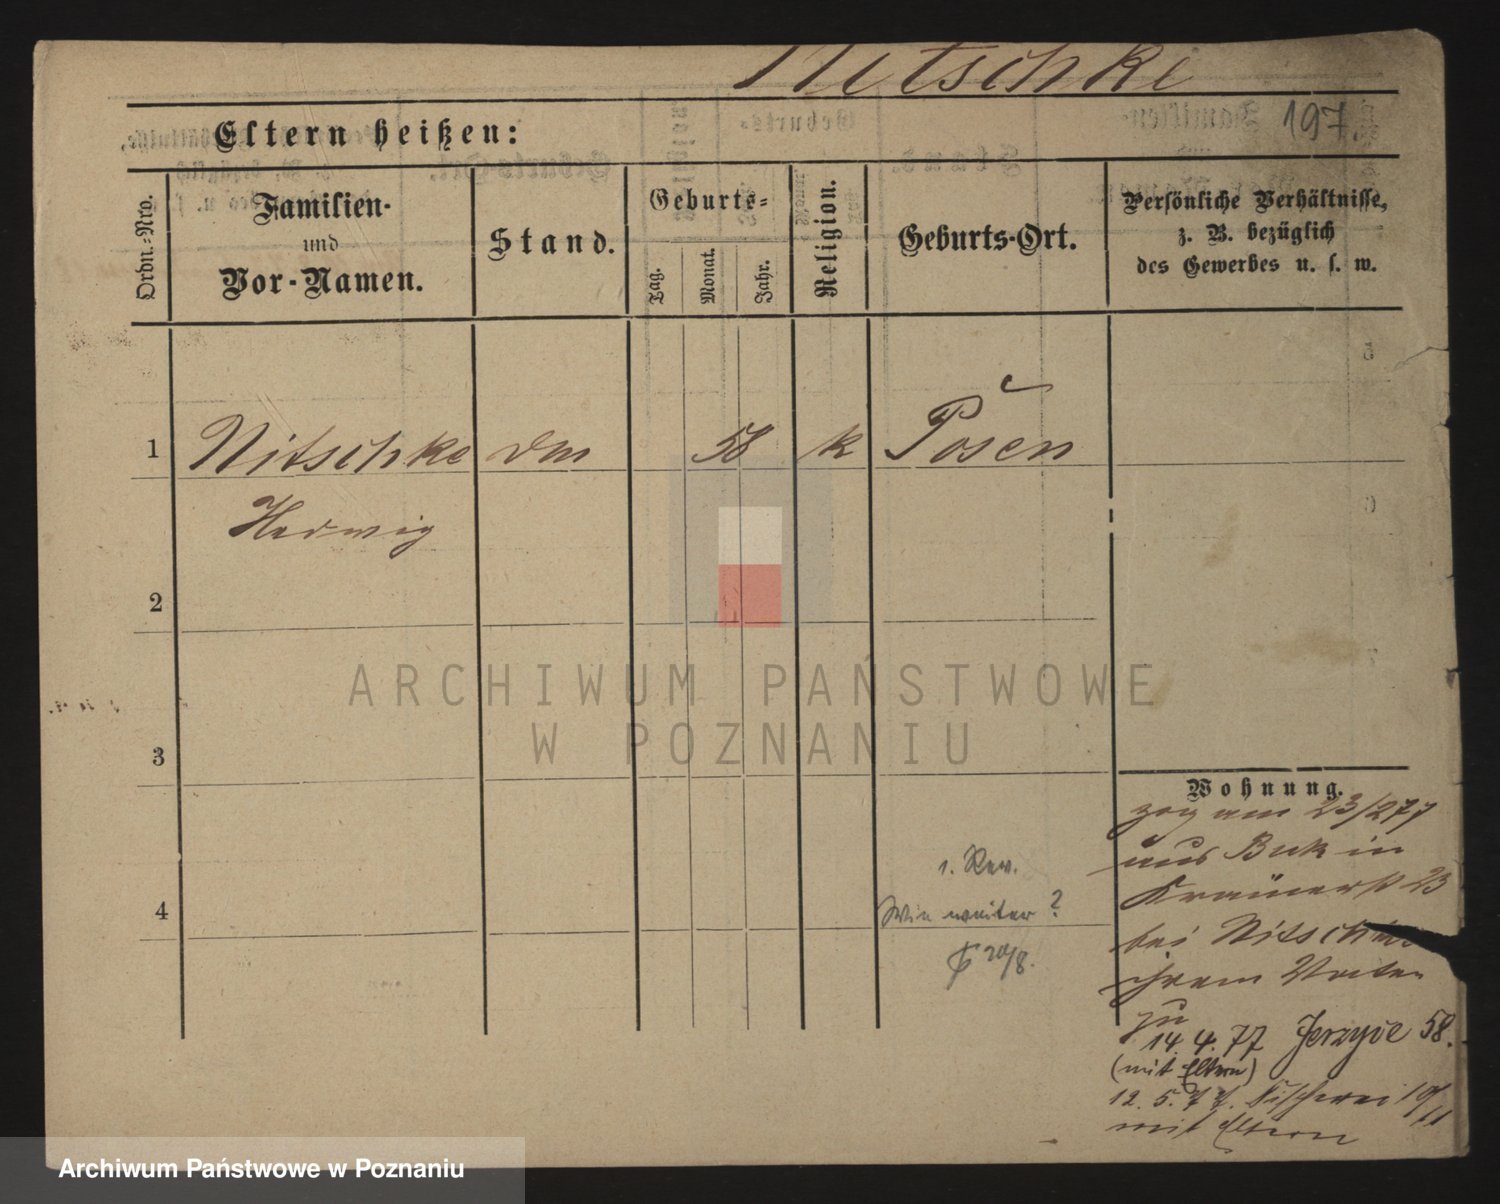 Nitschke
197
Eltern heißen:
Ordn.-Nro.
Familien-
und
Vor-Namen.
Stand.
Geburts-
Tag.
Monat.
Jahr.
Religion.
Geburts-Ort.
Persönliche Verhältnisse,
z. B. bezüglich
des Gewerbes u. s. w.
1 Nitschke 58 k Posen
Hedwig
2
3
4
Wohnung.
zog am 23/2 77
aus Buk in
Krämerst 23
bei Nitschke
ihrem Vater
zu
14. 4. 77 Jerzyce 58.
(mit Eltern)
12. 5. 77. Fischerei 10/11
mit Eltern
1. Rev.
Wie weiter?
20/8.
ARCHIWUM PAŃSTWOWE
W POZNANIU
Archiwum Państwowe w Poznaniu